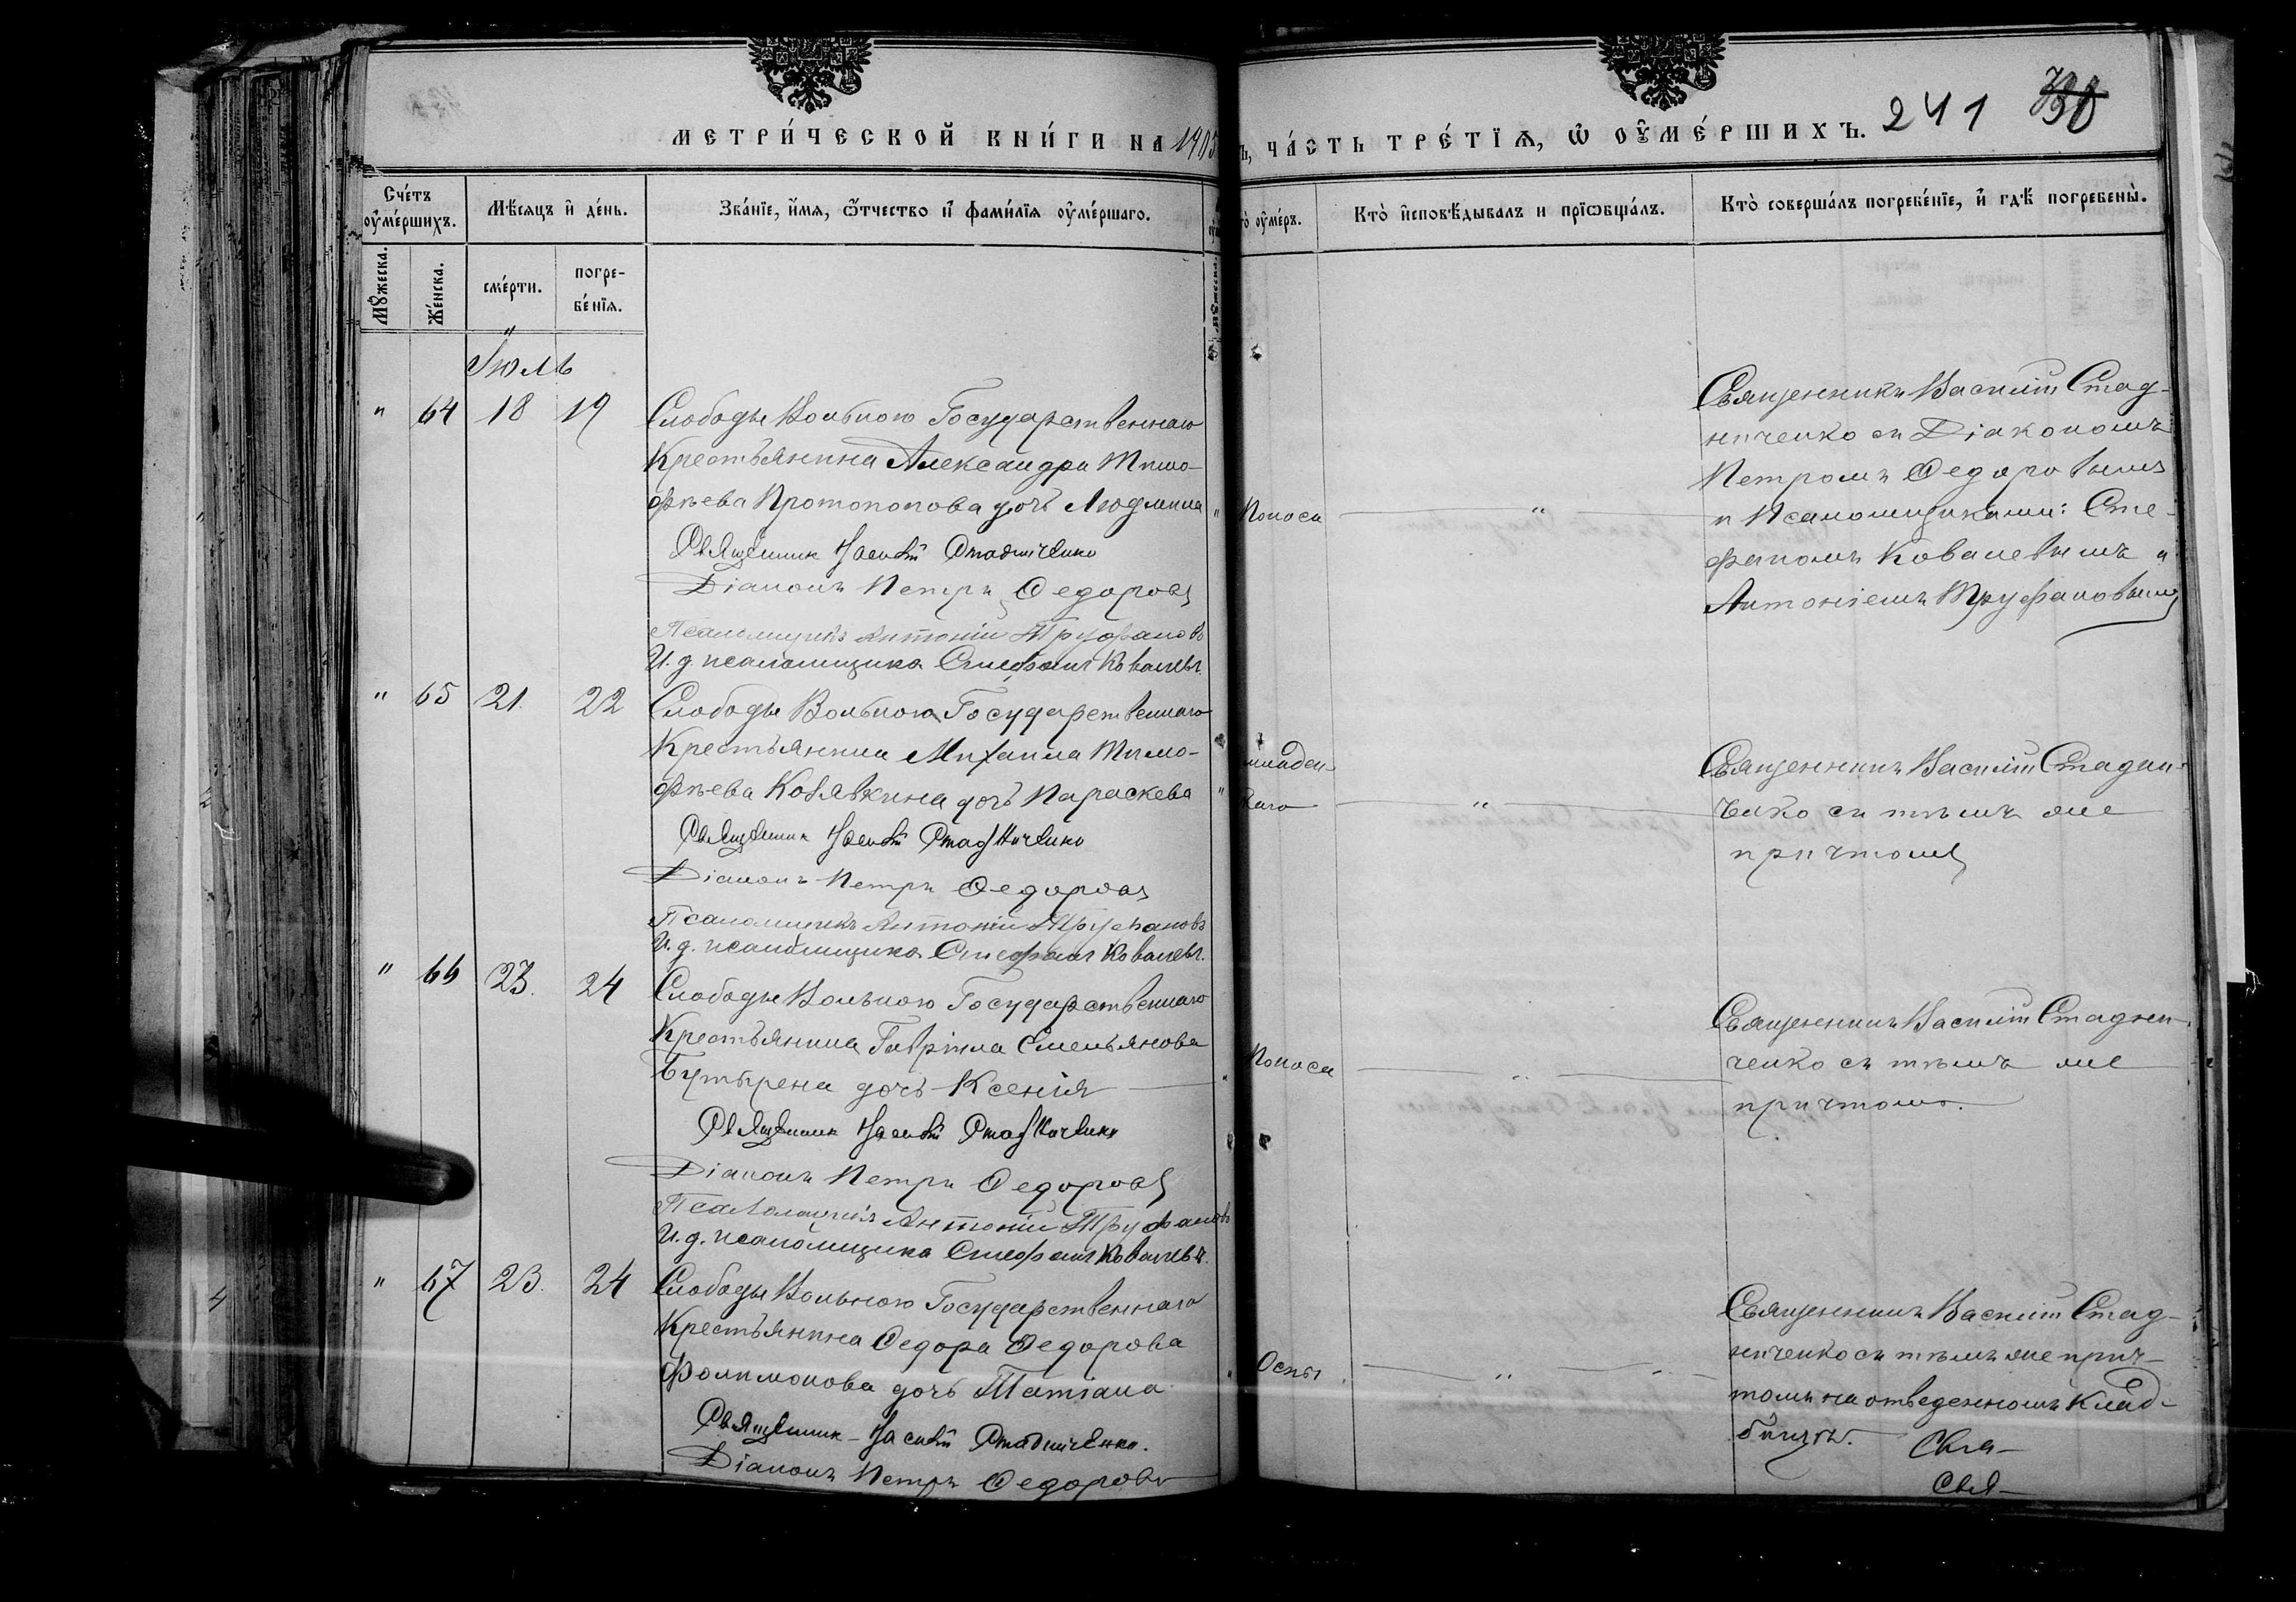 МЕТРИ́ЧЕСКОЙ КНИ́ГИ НА 1905
Ъ, ЧА́СТЬ ТРЕ́ТІѦ, Ѡ҆ ОУ҆МЕ́РШИХЪ. 241
Сче́тъ оу҆ме́ршихъ.
Мѣ́сяцъ и҆ де́нь.
Зва́нїе, и҆́мя, ѻ҆́тчество и҆ фами́лїя оу҆ме́ршаго.
оу҆ме́ръ.
Кто̀ и҆сповѣ́дывалъ и прїѡбща́лъ.
Кто̀ соверша́лъ погребе́нїе, и҆ гдѣ̀ погребены̀.
Мꙋ́жеска.
Же́нска.
сме́рти.
погре-
бе́нїя.
Іюль
" 64 18 19
Слободы Вольного Государственнаго
Крестьянина Александра Тимо-
фѣева Протопопова дочь Людмила
Священникъ Василій Стадниченко
Діаконъ Петръ Ѳедоровъ
Псаломщикъ Антоній Труфановъ
И. д. псаломщика Стефанъ Ковалевъ.
Поноса
"
Священникъ Василій Стад-
ниченко съ Діакономъ
Петромъ Ѳедоровымъ
и Псаломщиками: Сте-
фаномъ Ковалевымъ и
Антоніемъ Труфановымъ
" 65 21. 22
Слободы Вольного Государственнаго
Крестьянина Михаила Тимо-
фѣева дочь Параскева
Священникъ Василій Стадниченко
Діаконъ Петръ Ѳедоровъ
Псаломщикъ Антоній Труфановъ
И. д. псаломщика Стефанъ Ковалевъ.
младен-
"
Священникъ Василій Стадни-
ченко съ тѣмъ же
причтомъ
" 66 23. 24
Слободы Вольного Государственнаго
Крестьянина Гавріила Емельянова
дочь Ксенія
Священникъ Василій Стадниченко
Діаконъ Петръ Ѳедоровъ
Псаломщикъ Антоній Труфановъ
И. д. псаломщика Стефанъ Ковалевъ.
Поноса
"
Священникъ Василій Стадни-
ченко съ тѣмъ же
причтомъ.
" 67 23. 24
Слободы Вольного Государственнаго
Крестьянина Ѳедора Ѳедорова
Филимонова дочь Татіана
Священникъ Василій Стадниченко.
Діаконъ Петръ Ѳедоровъ
Оспы
"
Священникъ Василій Стад-
ниченко съ тѣмъ же прич-
томъ на отведенномъ клад-
бищѣ.
Свя-